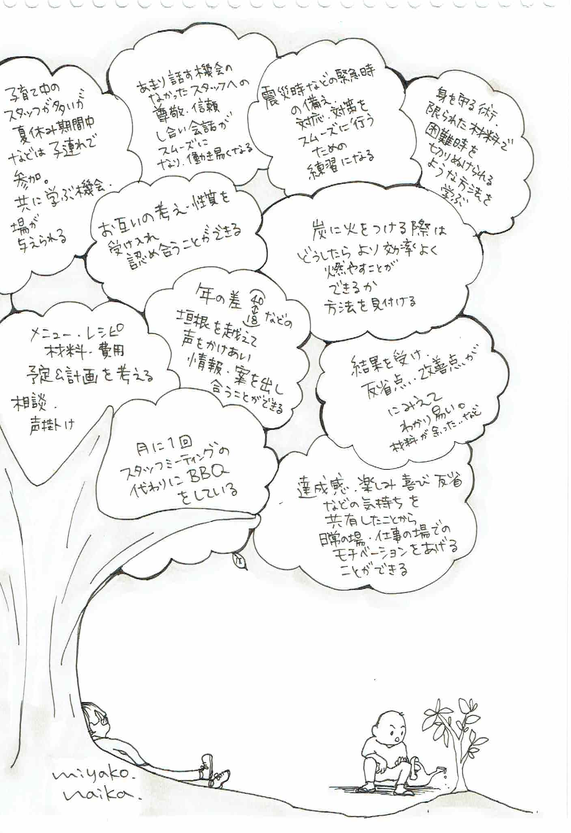 子育て中の
スタッフが多いが
夏休み期間中
などは子連れで
参加。
共に学ぶ機会・
場が
与えられる
あまり話す機会の
なかったスタッフへの
尊敬・信頼
し合い会話が
スムーズに
なり、働き易くなる
震災時などの緊急時
の備え
対応・対策を
スムーズに行う
ための
練習になる
身を守る術
限られた材料で
困難時を
切りぬけられる
ような方法を
学ぶ
お互いの考え・性質を
受け入れ
認め合うことができる
炭に火をつける際は
どうしたらより効率よく
燃やすことが
できるか
方法を見付ける
年の差 などの
垣根を越えて
声をかけあい
情報・案を出し
合うことができる
メニュー・レシピ
材料・費用
予定&計画を考える
相談・
声掛け
結果を受け・
反省点・改善点が
にみえて
わかり易い。
材料が余った…など
月に1回
スタッフミーティングの
代わりにBBQ
をしている
達成感・楽しみ 喜び 反省
などの気持ちを
共有したことから
日常の場・仕事の場での
モチベーションをあげる
ことができる
miyako.
naika.